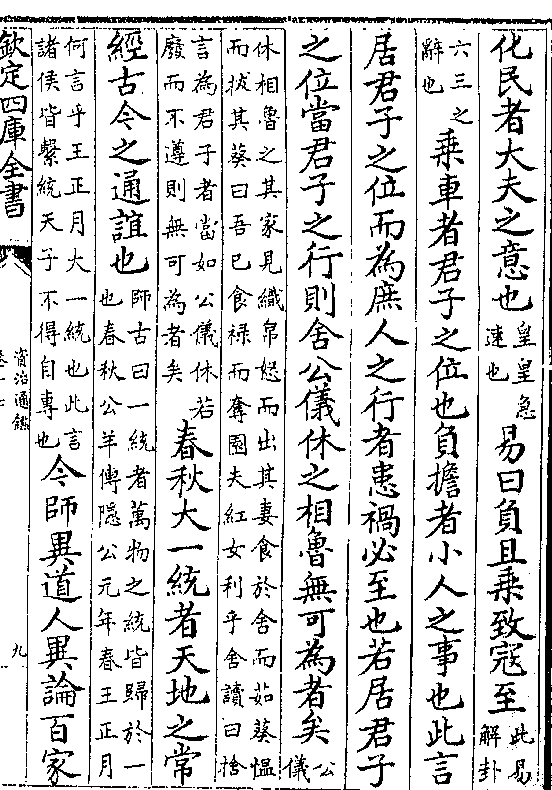 化民者大夫之意也皇皇急速也易曰負且乗致寇至此易解卦
六三之辭也乗車者君子之位也負擔者小人之事也此言
居君子之位而為庶人之行者患禍必至也若居君子
之位當君子之行則舍公儀休之相魯無可為者矣公儀
休相魯之其家見織帛怒而出其妻食於舍而茹葵愠
而拔其葵曰吾已食禄而奪園夫紅女利乎舍讀曰捨
言為君子者當如公儀休若廢而不遵則無可為者矣春秋大一統者天地之常
經古今之通誼也師古曰一統者萬物之統皆歸於一也春秋公羊傳隠公元年春王正月
何言乎王正月大一統也此言諸侯皆繫統天子不得自専也今師異道人異論百家
欽定四庫全書
資治通鑑
九